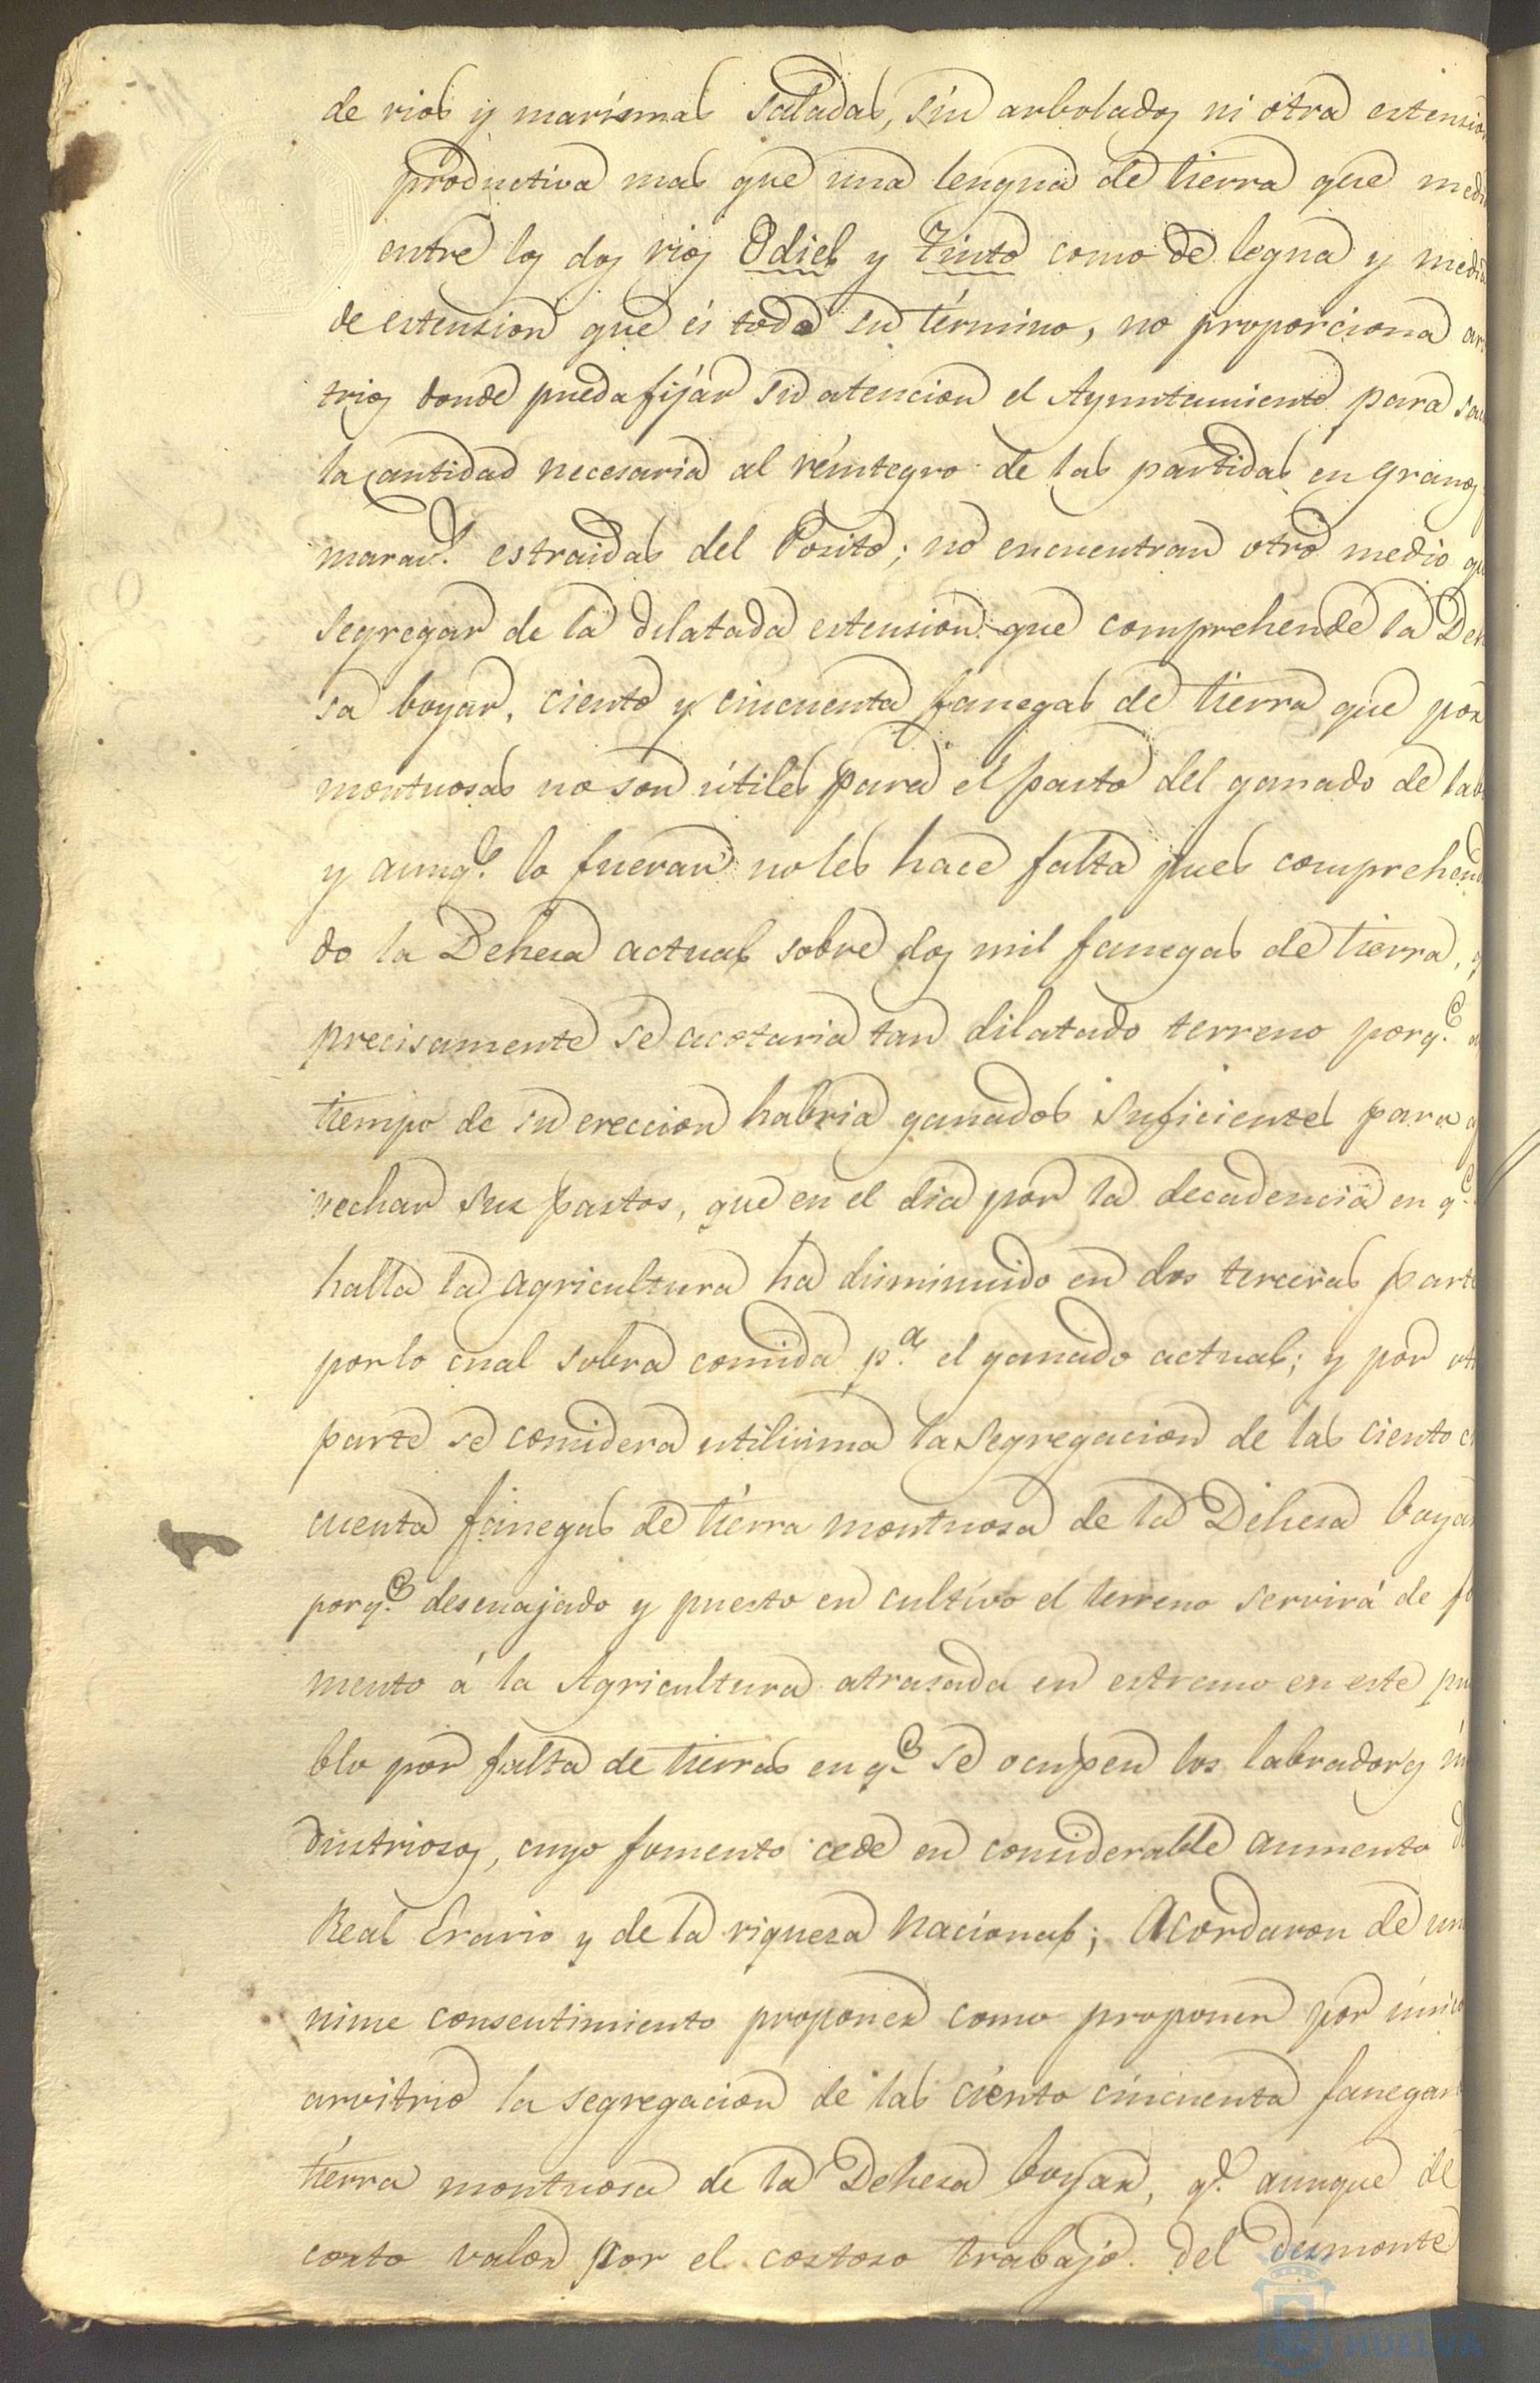 de rios y marismas saladas, sin arbolados ni otra estension
productiva mas que una lengua de tierra que media
entre los dos rios Odiel y Tinto como de legua y media
de estension que és todo su término, no proporciona ar
trios donde pueda fijár su atencion el Ayuntamiento para sa
la cantidad necesaria al réintegro de las partidas en granos
marav.s estraidas del Posito; no encuentran otro medio qu
segregar de la dilatada estension que comprehende la Deh
sa boyar, ciento y cincuenta fanegas de tierra que por
montuosas no son útiles para el pasto del ganado de lab
y aunq.e lo fueran no les hace falta pues comprehend
do la Dehesa actual sobre dos mil fanegas de tierra, q
precisamente se acotaria tan dilatado terreno porq.e a
tiempo de su ereccion habria ganados suficientes para a
vechar sus pastos, que en el dia por la decadencia en q.e
halla la agricultura ha disminuido en dos terceras parte
por lo cual sobra comida p.a el ganado actual; y por ot
parte se considera utilisima la segregacion de las ciento ci
cuenta fanegas de tierra montuosa de la Dehesa boyar
porq.e descuajado y puesto en cultivo el terreno servirá de fo
mento á la Agricultura atrasada en estremo en este pu
blo por falta de tierras en q.e se ocupen los labradores in
dustriosos, cuyo fomento cede en considerable aumento d
Real Erario y de la riqueza nacional; Acordaron de un
nime consentimiento proponer como proponen por único
arvitrio la segregacion de las ciento cincuenta fanegas
tierra montuosa de la Dehesa boyar, q.e aunque de
corto valor por el costoso trabajo del desmonte
HUELVA